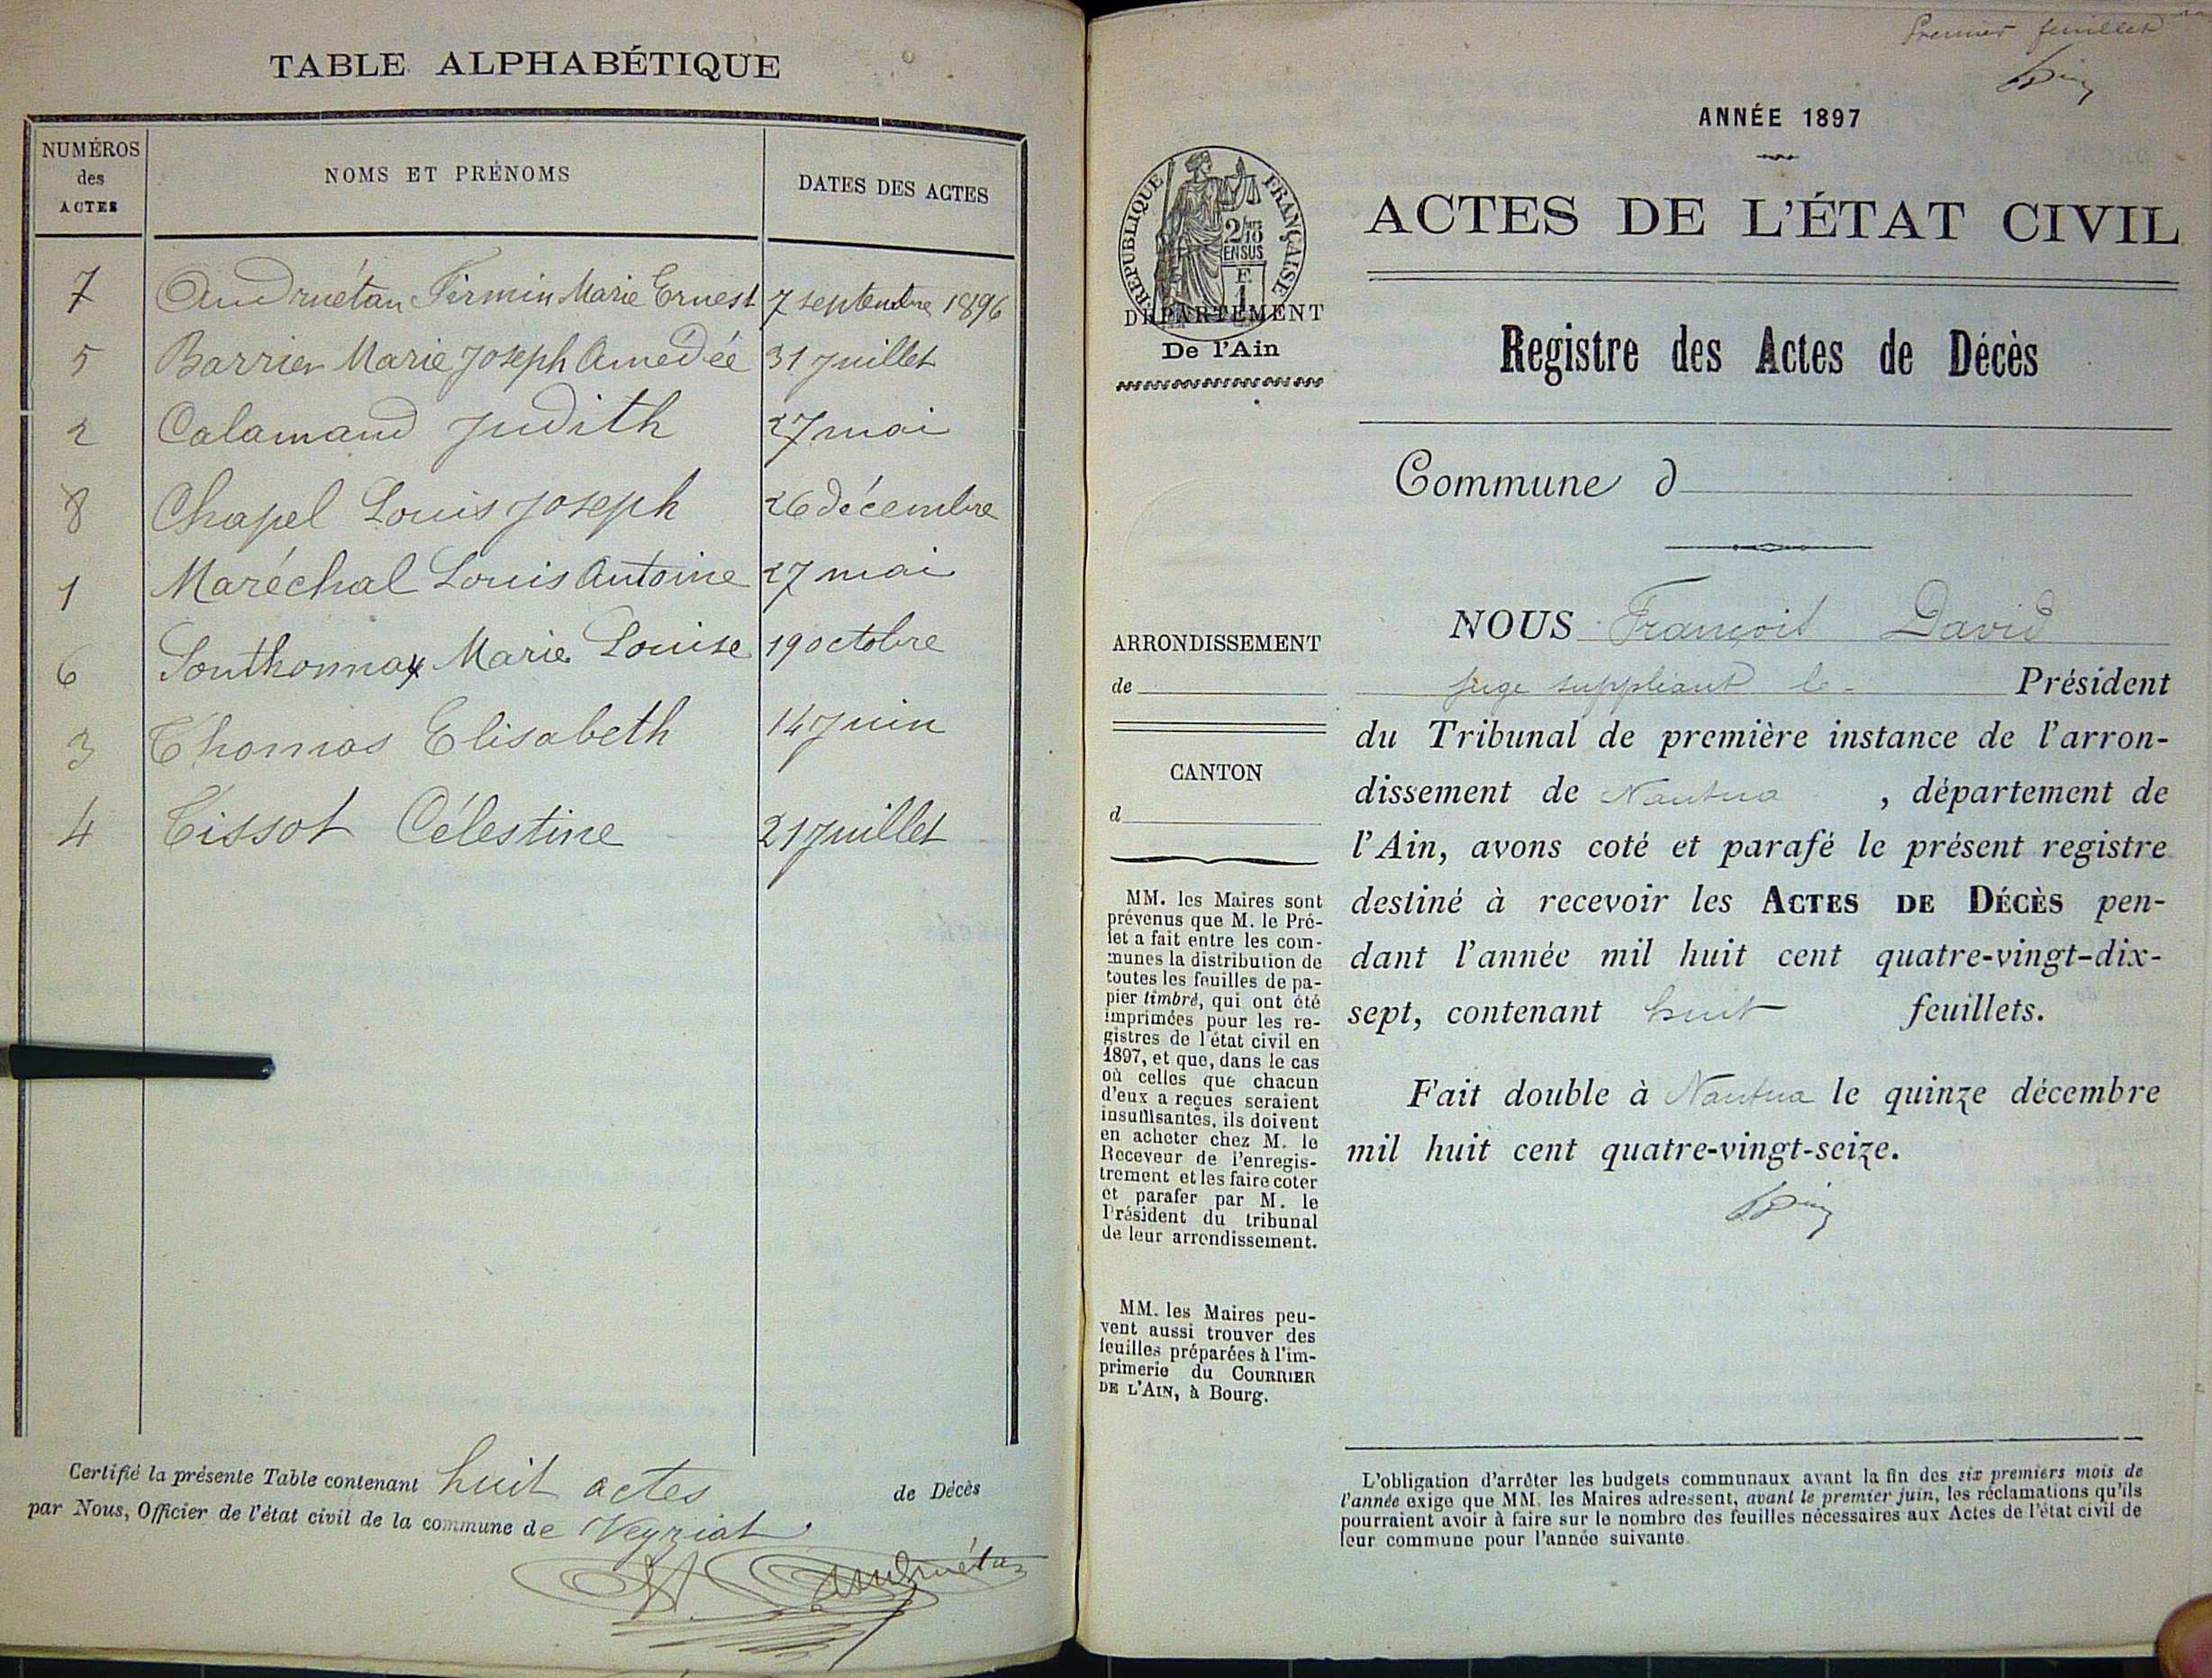 TABLE ALPHABÉTIQUE
NUMÉROS
des
ACTES
NOMS ET PRÉNOMS
DATES DES ACTES
7 Andruétan Firmin Marie Ernest 7 septembre 1896
5 Barrier Marie Joseph Amédée 31 juillet
2 Calamand Judith 27 mai
8 Chapel Louis Joseph 26 décembre
1 Maréchal Louis Antoine 27 mai
6 Sonthonnax Marie Louise 19 octobre
3 Thomas Elisabeth 14 juin
4 Tissot Célestine 21 juillet
Certifié la présente Table contenant huit actes de Décès
par Nous, Officier de l'état civil de la commune de Veyziat.
A. Andruétan
Premier feuillet
ANNÉE 1897
RÉPUBLIQUE FRANÇAISE
2/10
EN SUS
F
1
ACTES DE L'ÉTAT CIVIL
DÉPARTEMENT
De l'Ain
Registre des Actes de Décès
Commune d
ARRONDISSEMENT
de
CANTON
d
MM. les Maires sont
prévenus que M. le Pré-
fet a fait entre les com-
munes la distribution de
toutes les feuilles de pa-
pier timbré, qui ont été
imprimées pour les re-
gistres de l'état civil en
1897, et que, dans le cas
où celles que chacun
d'eux a reçues seraient
insuffisantes, ils doivent
en acheter chez M. le
Receveur de l'enregis-
trement et les faire coter
et parafer par M. le
Président du tribunal
de leur arrondissement.
MM. les Maires peu-
vent aussi trouver des
feuilles préparées à l'im-
primerie du COURRIER
DE L'AIN, à Bourg.
NOUS François David
juge suppléant le Président
du Tribunal de première instance de l'arron-
dissement de Nantua , département de
l'Ain, avons coté et parafé le présent registre
destiné à recevoir les ACTES DE DÉCÈS pen-
dant l'année mil huit cent quatre-vingt-dix-
sept, contenant huit feuillets.
Fait double à Nantua le quinze décembre
mil huit cent quatre-vingt-seize.
L'obligation d'arrêter les budgets communaux avant la fin des six premiers mois de
l'année exige que MM. les Maires adressent, avant le premier juin, les réclamations qu'ils
pourraient avoir à faire sur le nombre des feuilles nécessaires aux Actes de l'état civil de
leur commune pour l'année suivante.